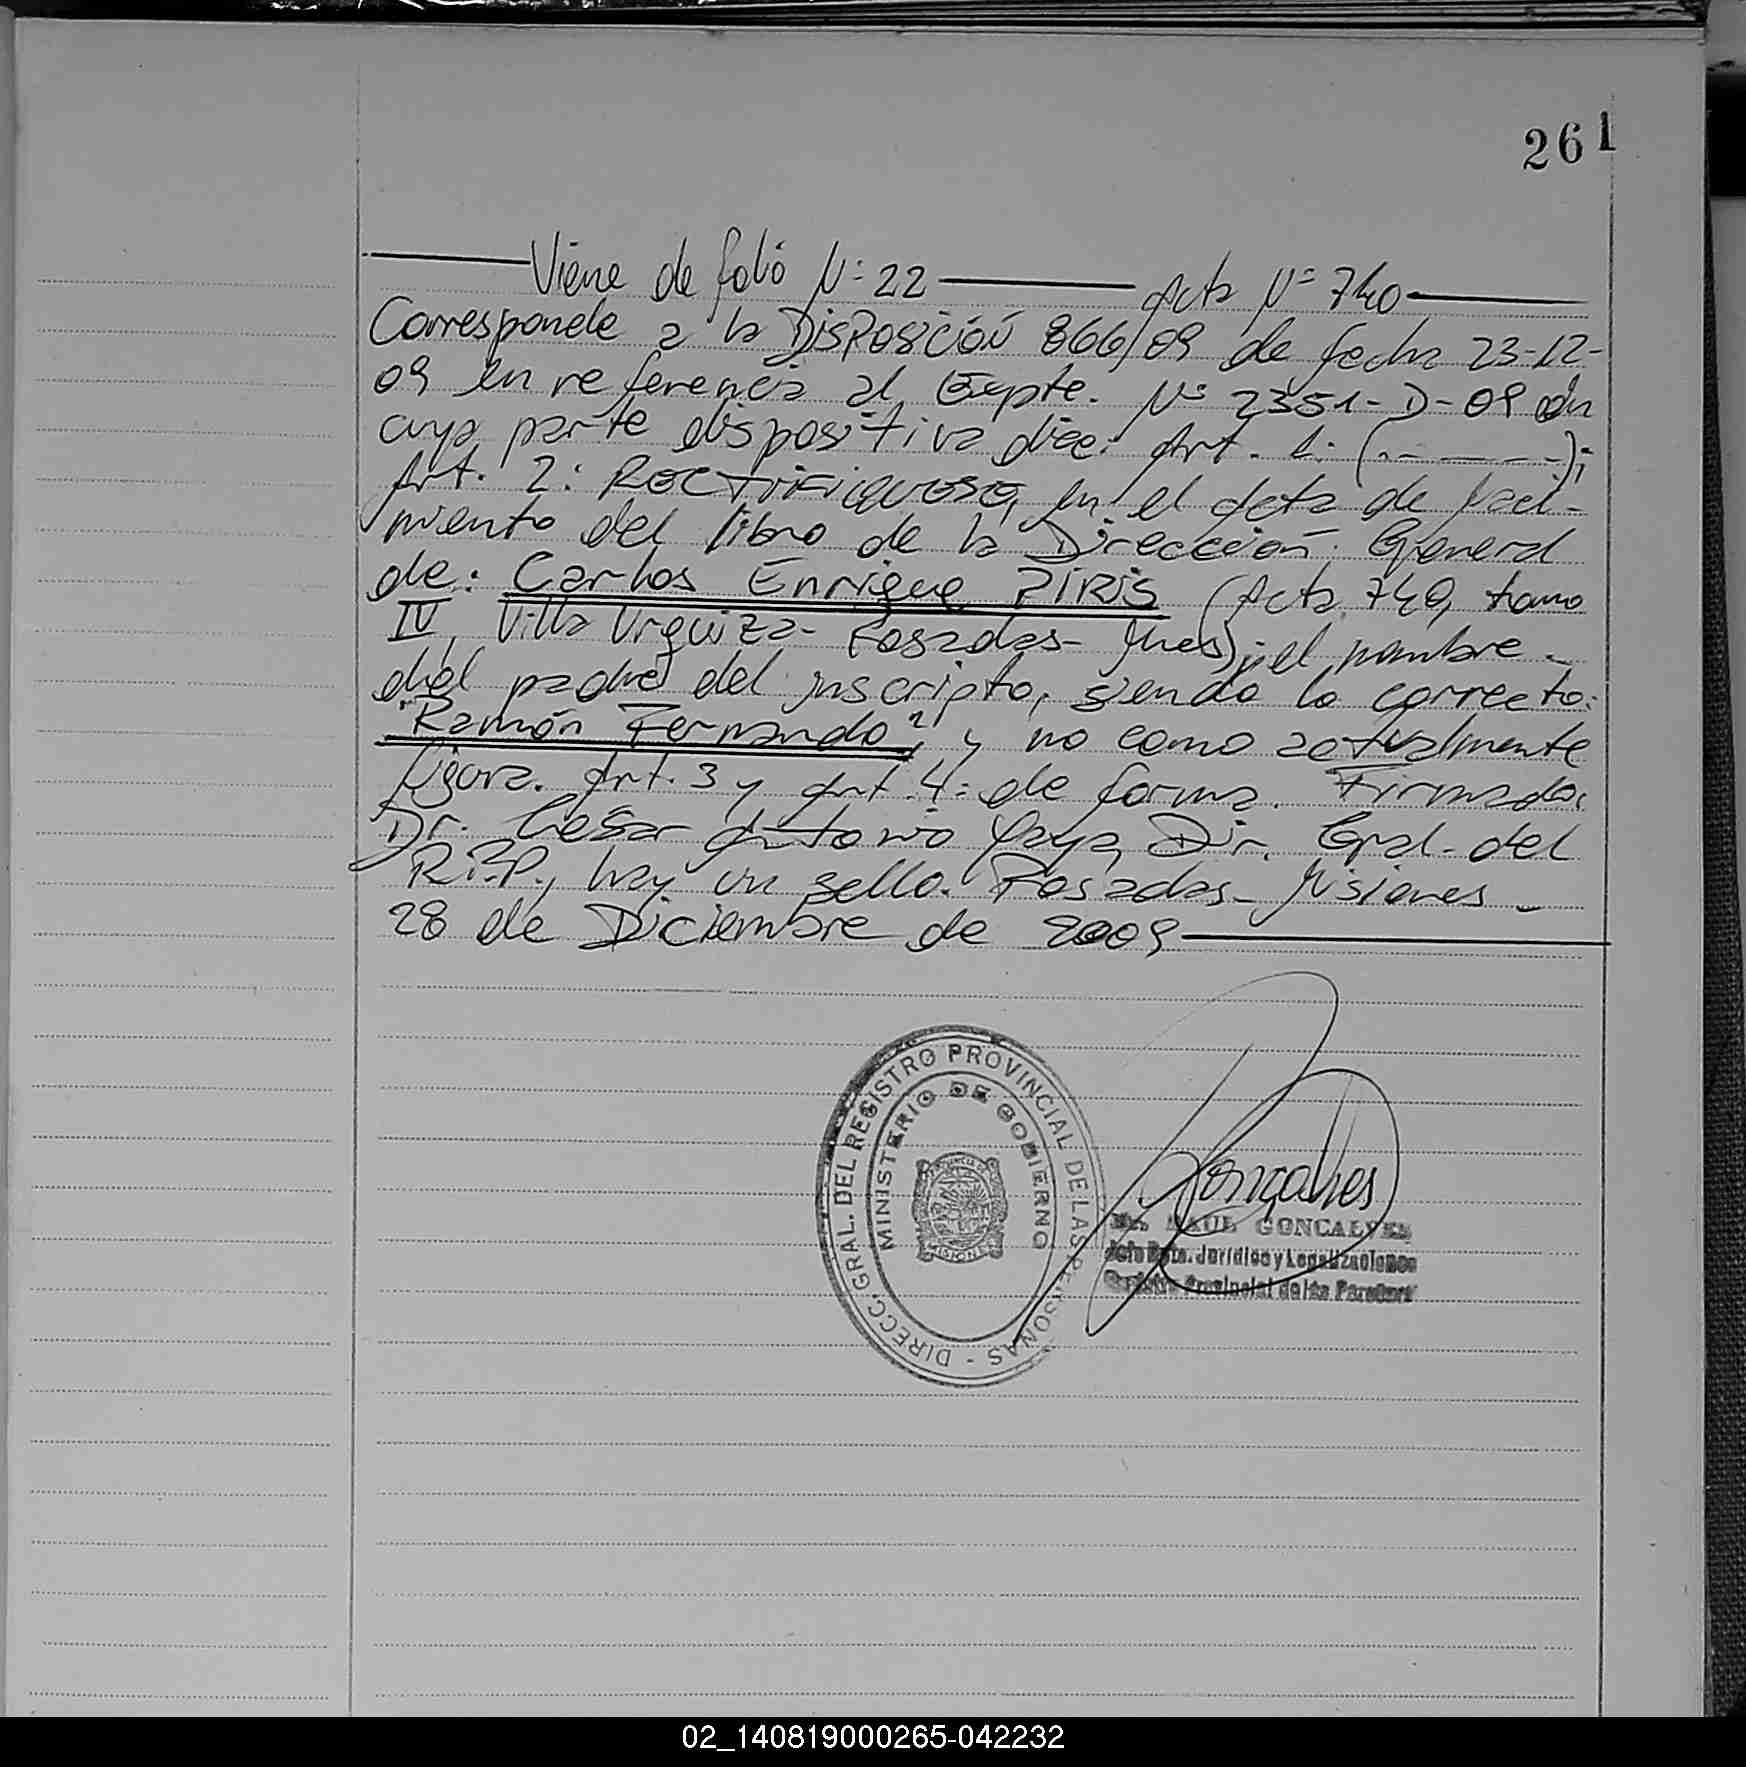 261
Viene de folio N: 22 Acta Nº 740
Corresponde a la DISPOSICIÓN 866/09 de fecha 23-12-
09 en referencia al Expte. Nº 2351-D-09 en
cuya parte dispositiva dice: Art. 1: (.- - - - -);
Art. 2: RECTIFIQUESE, en el Acta de Naci-
miento del libro de la Dirección General
de: Carlos Enrique PIRIS (Acta 740, tomo
IV, Villa Urquiza- Posadas- Mnes); el nombre
del padre del inscripto, siendo lo correcto:
"Ramón Fernando", y no como actualmente
figura. Art. 3 y Art. 4: de forma. Firmado:
Dr. César Antonio Yaya, Dir. Gral. del
R.P.P., hay un sello. Posadas- Misiones -
28 de Diciembre de 2009
DIRECC. GRAL. DEL REGISTRO PROVINCIAL DE LAS PERSONAS -
MINISTERIO DE GOBIERNO
PROVINCIA DE
MISIONES
Gonçalves
RAUL GONCALVES
Jefe Dpto. Jurídico y Legalizaciones
Registro Provincial de las Personas
02_140819000265-042232